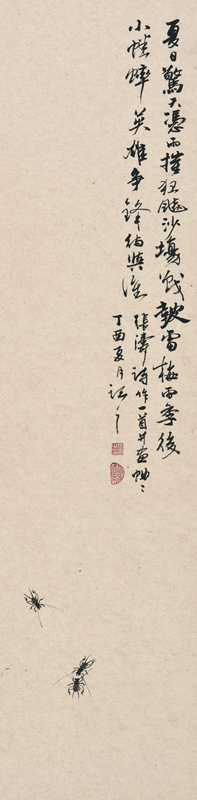 夏日驚天憑雨摧狂飈沙場戰鼓雷梅雨季後
小蟋蟀英雄爭鋒倘與誰
張濤詩作一首并畫蛐〻
丁酉夏月